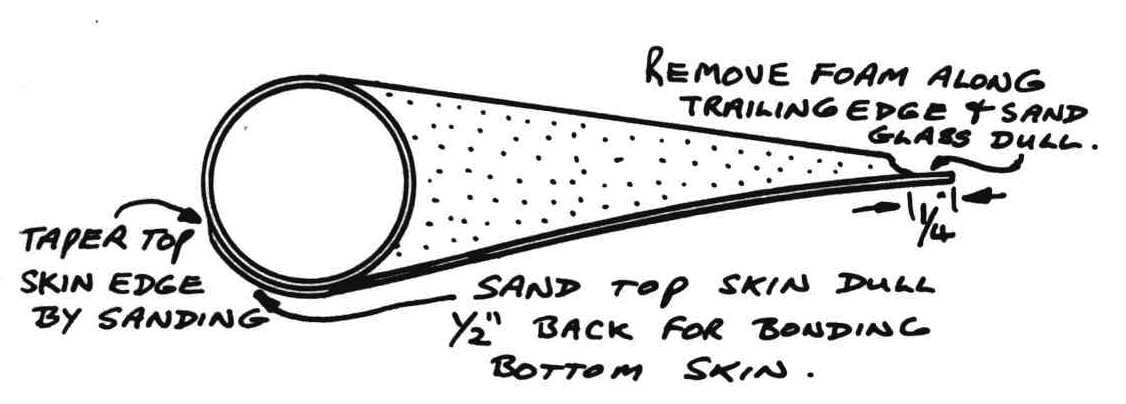 REMOVE FOAM ALONG
TRAILING EDGE & SAND
GLASS DULL.
1/4"
TAPER TOP
SKIN EDGE
BY SANDING
SAND TOP SKIN DULL
1/2" BACK FOR BONDING
BOTTOM SKIN.